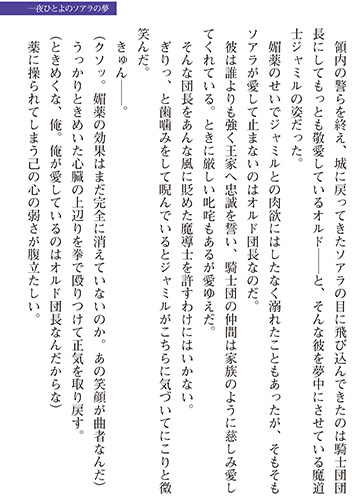 一夜ひとよのソアラの夢
領内の警らを終え、城に戻ってきたソアラの目に飛び込んできたのは騎士団団
長にしてもっとも敬愛しているオルド――と、そんな彼を夢中にさせている魔道
士ジャミルの姿だった。
媚薬のせいでジャミルとの肉欲にはしたなく溺れたこともあったが、そもそも
ソアラが愛して止まないのはオルド団長なのだ。
彼は誰よりも強く王家へ忠誠を誓い、騎士団の仲間は家族のように慈しみ愛し
てくれている。ときに厳しい叱咤もあるが愛ゆえだ。
そんな団長をあんな風に貶めた魔導士を許すわけにはいかない。
ぎりっ、と歯噛みをして睨んでいるとジャミルがこちらに気づいてにこりと微
笑んだ。
きゅん――。
(クソッ。媚薬の効果はまだ完全に消えていないのか。あの笑顔が曲者なんだ)
うっかりときめいた心臓の上辺りを拳で殴りつけて正気を取り戻す。
(ときめくな、俺。俺が愛しているのはオルド団長なんだからな)
薬に操られてしまう己の心の弱さが腹立たしい。